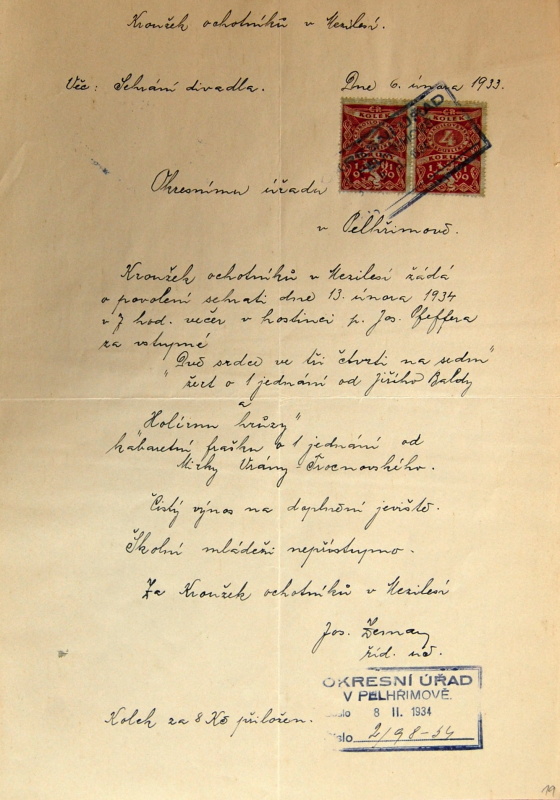 Kroužek ochotníků v Mezilesí.
Věc: Sehrání divadla.
Dne 6. února 1933.
Okresnímu úřadu
v Pelhřimově.
Kroužek ochotníků v Mezilesí žádá
o povolení sehrati dne 13. února 1934
v 7 hod. večer v hostinci p. Jos. Pfeffera
za vstupné
"Dvě srdce ve tři čtvrti na sedm"
žert o 1 jednání od Jiřího Baldy
a
"Holírnu hrůzy"
kabaretní frašku o 1 jednání od
Mirky Vrány-Trocnovského.
Čistý výnos na doplnění jeviště.
Školní mládeži nepřístupno.
Za Kroužek ochotníků v Mezilesí
Jos.
říd. uč.
OKRESNÍ ÚŘAD
V PELHŘIMOVĚ.
8 II. 1934
Číslo 2/98-34
Kolek za 8 Kč přiložen.